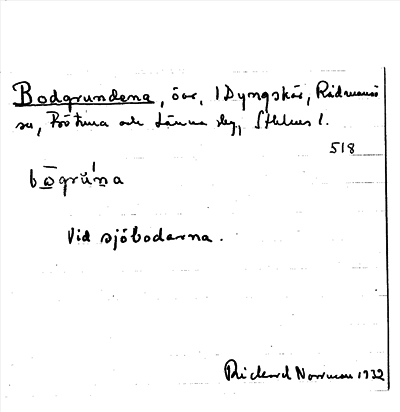 Bodgrundena, öar, I Dyngskär, Rådmansö
sn, Frötuna och Länna skg, Sthlms l.
518
bo̲grúna
Vid sjöbodarna.
Rickard Norrman 1932